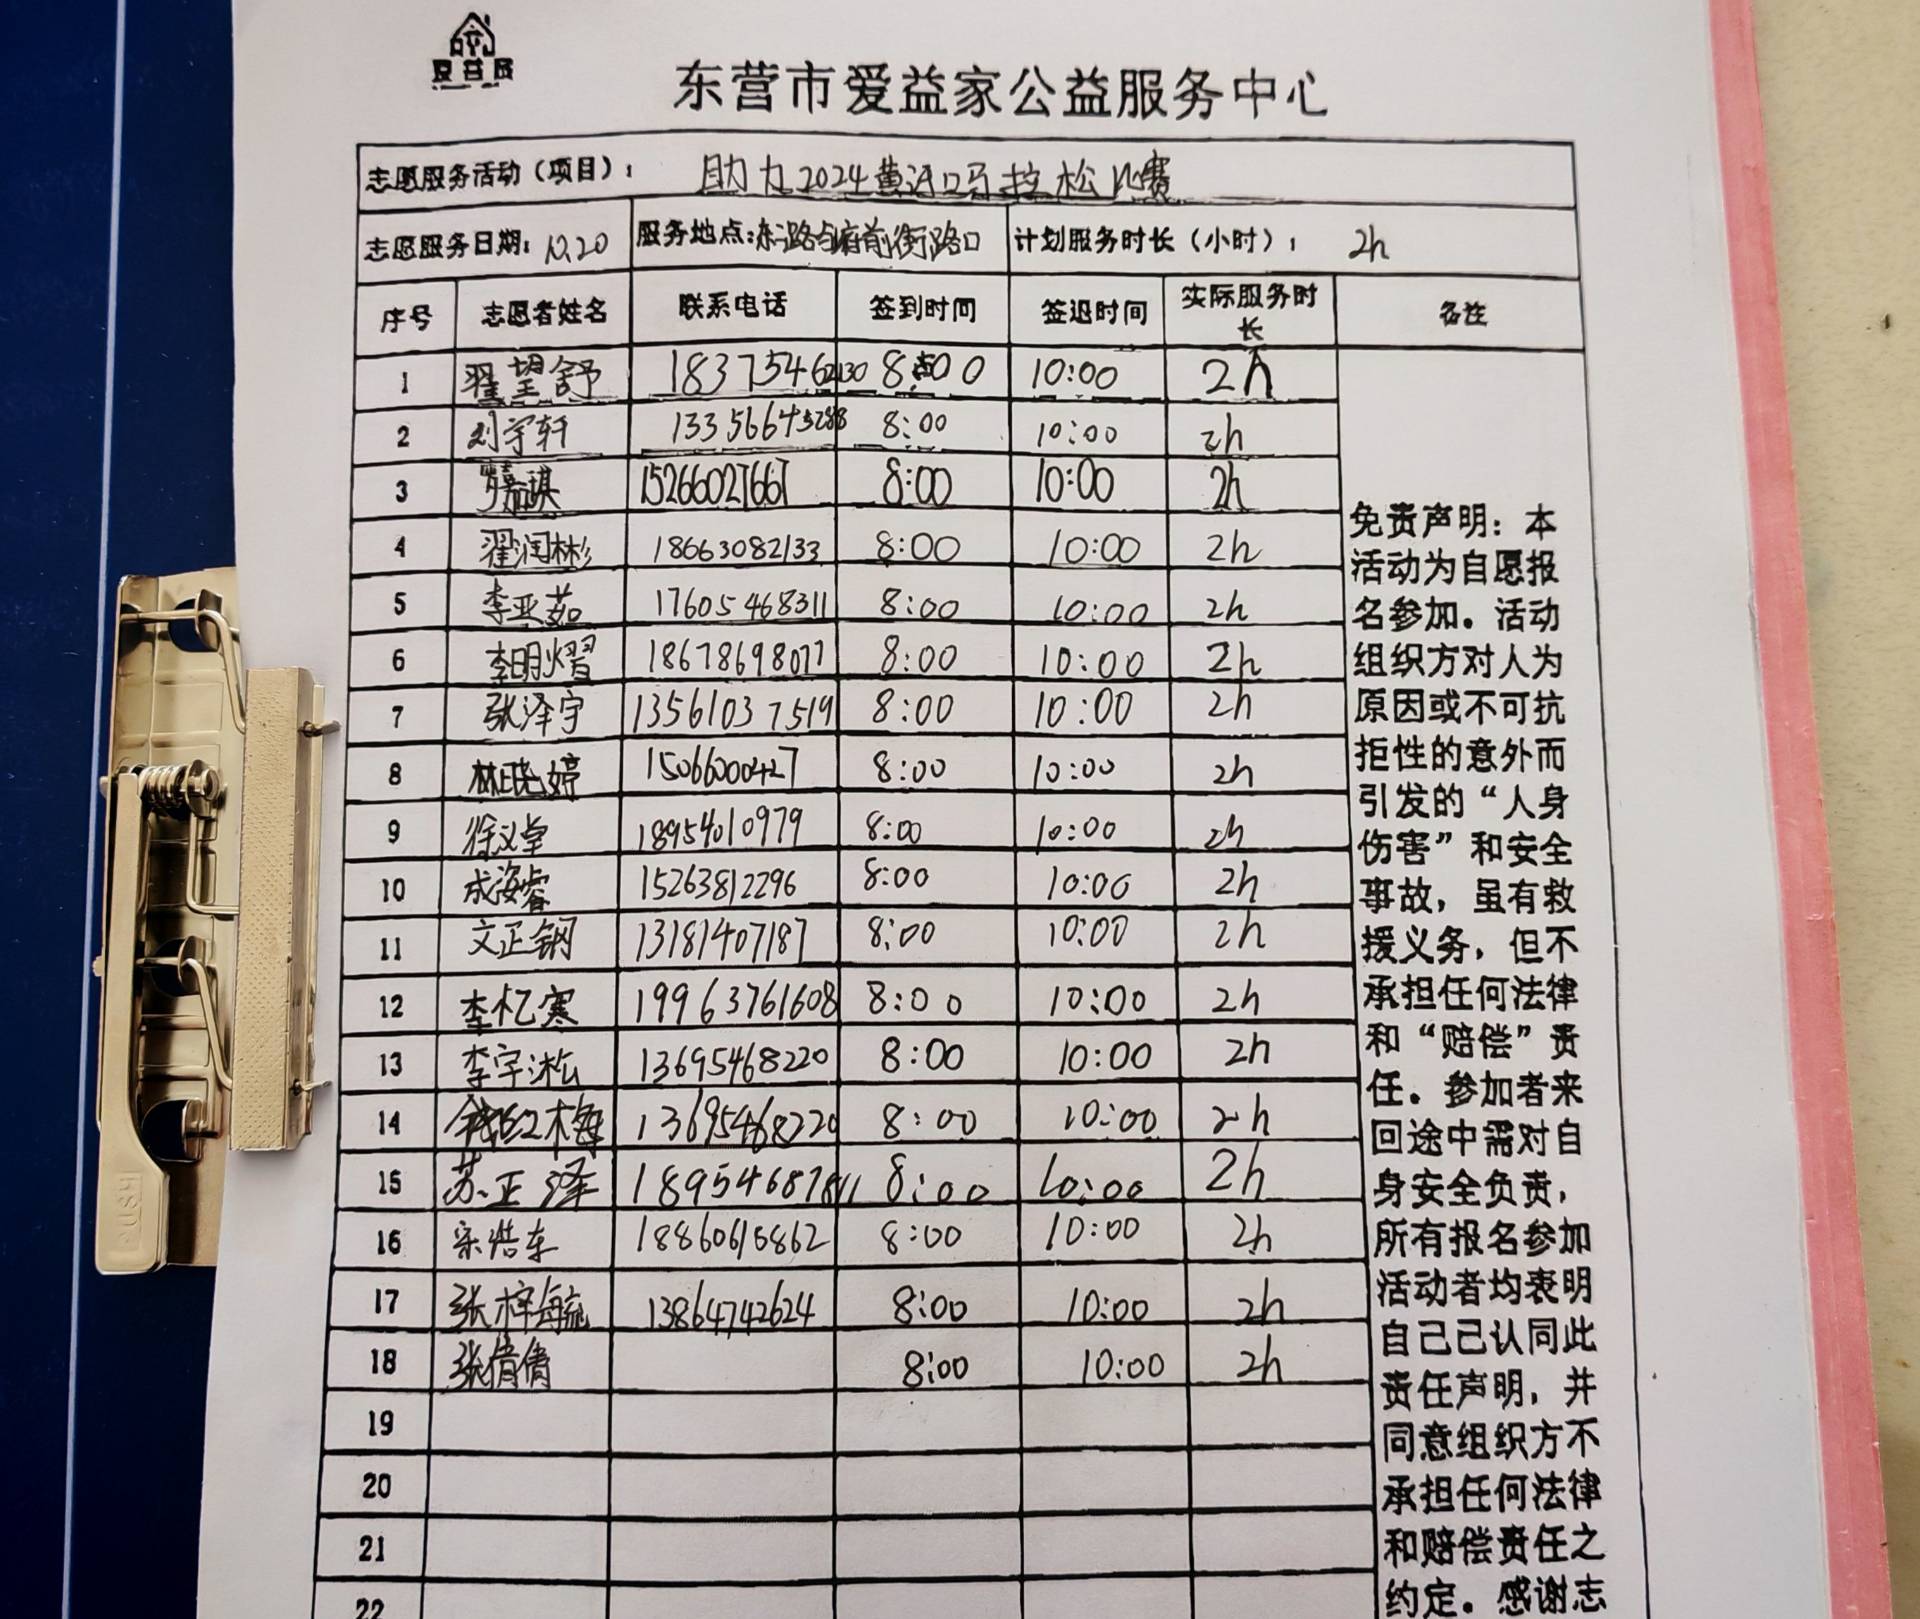 爱益家
东营市爱益家公益服务中心
志愿服务活动（项目）： 助力2024黄河口马拉松比赛
志愿服务日期：10.20 服务地点：东三路与府前街路口 计划服务时长（小时）： 2h
序号 志愿者姓名 联系电话 签到时间 签退时间 实际服务时长 备注
1 翟望舒 18375462130 8:00 10:00 2h
2 刘宇轩 13356645288 8:00 10:00 2h
3 嘉琪 15266027667 8:00 10:00 2h
4 翟润彬 18663082133 8:00 10:00 2h
5 李亚茹 17605468311 8:00 10:00 2h
6 李明熠 18678698077 8:00 10:00 2h
7 张泽宇 13561037519 8:00 10:00 2h
8 林晓婷 15066000427 8:00 10:00 2h
9 徐义堂 18954010979 8:00 10:00 2h
10 成姿睿 15263812296 8:00 10:00 2h
11 文正钢 13181407187 8:00 10:00 2h
12 李忆寒 19963761608 8:00 10:00 2h
13 李宇淞 13695468220 8:00 10:00 2h
14 钱红梅 13695468220 8:00 10:00 2h
15 苏正泽 18954687811 8:00 10:00 2h
16 宋浩车 18860615862 8:00 10:00 2h
17 张梓毓 13864742624 8:00 10:00 2h
18 张倩倩 8:00 10:00 2h
19
20
21
22
免责声明：本
活动为自愿报
名参加。活动
组织方对人为
原因或不可抗
拒性的意外而
引发的“人身
伤害”和安全
事故，虽有救
援义务，但不
承担任何法律
和“赔偿”责
任。参加者来
回途中需对自
身安全负责，
所有报名参加
活动者均表明
自己已认同此
责任声明，并
同意组织方不
承担任何法律
和赔偿责任之
约定。感谢志
PUSH